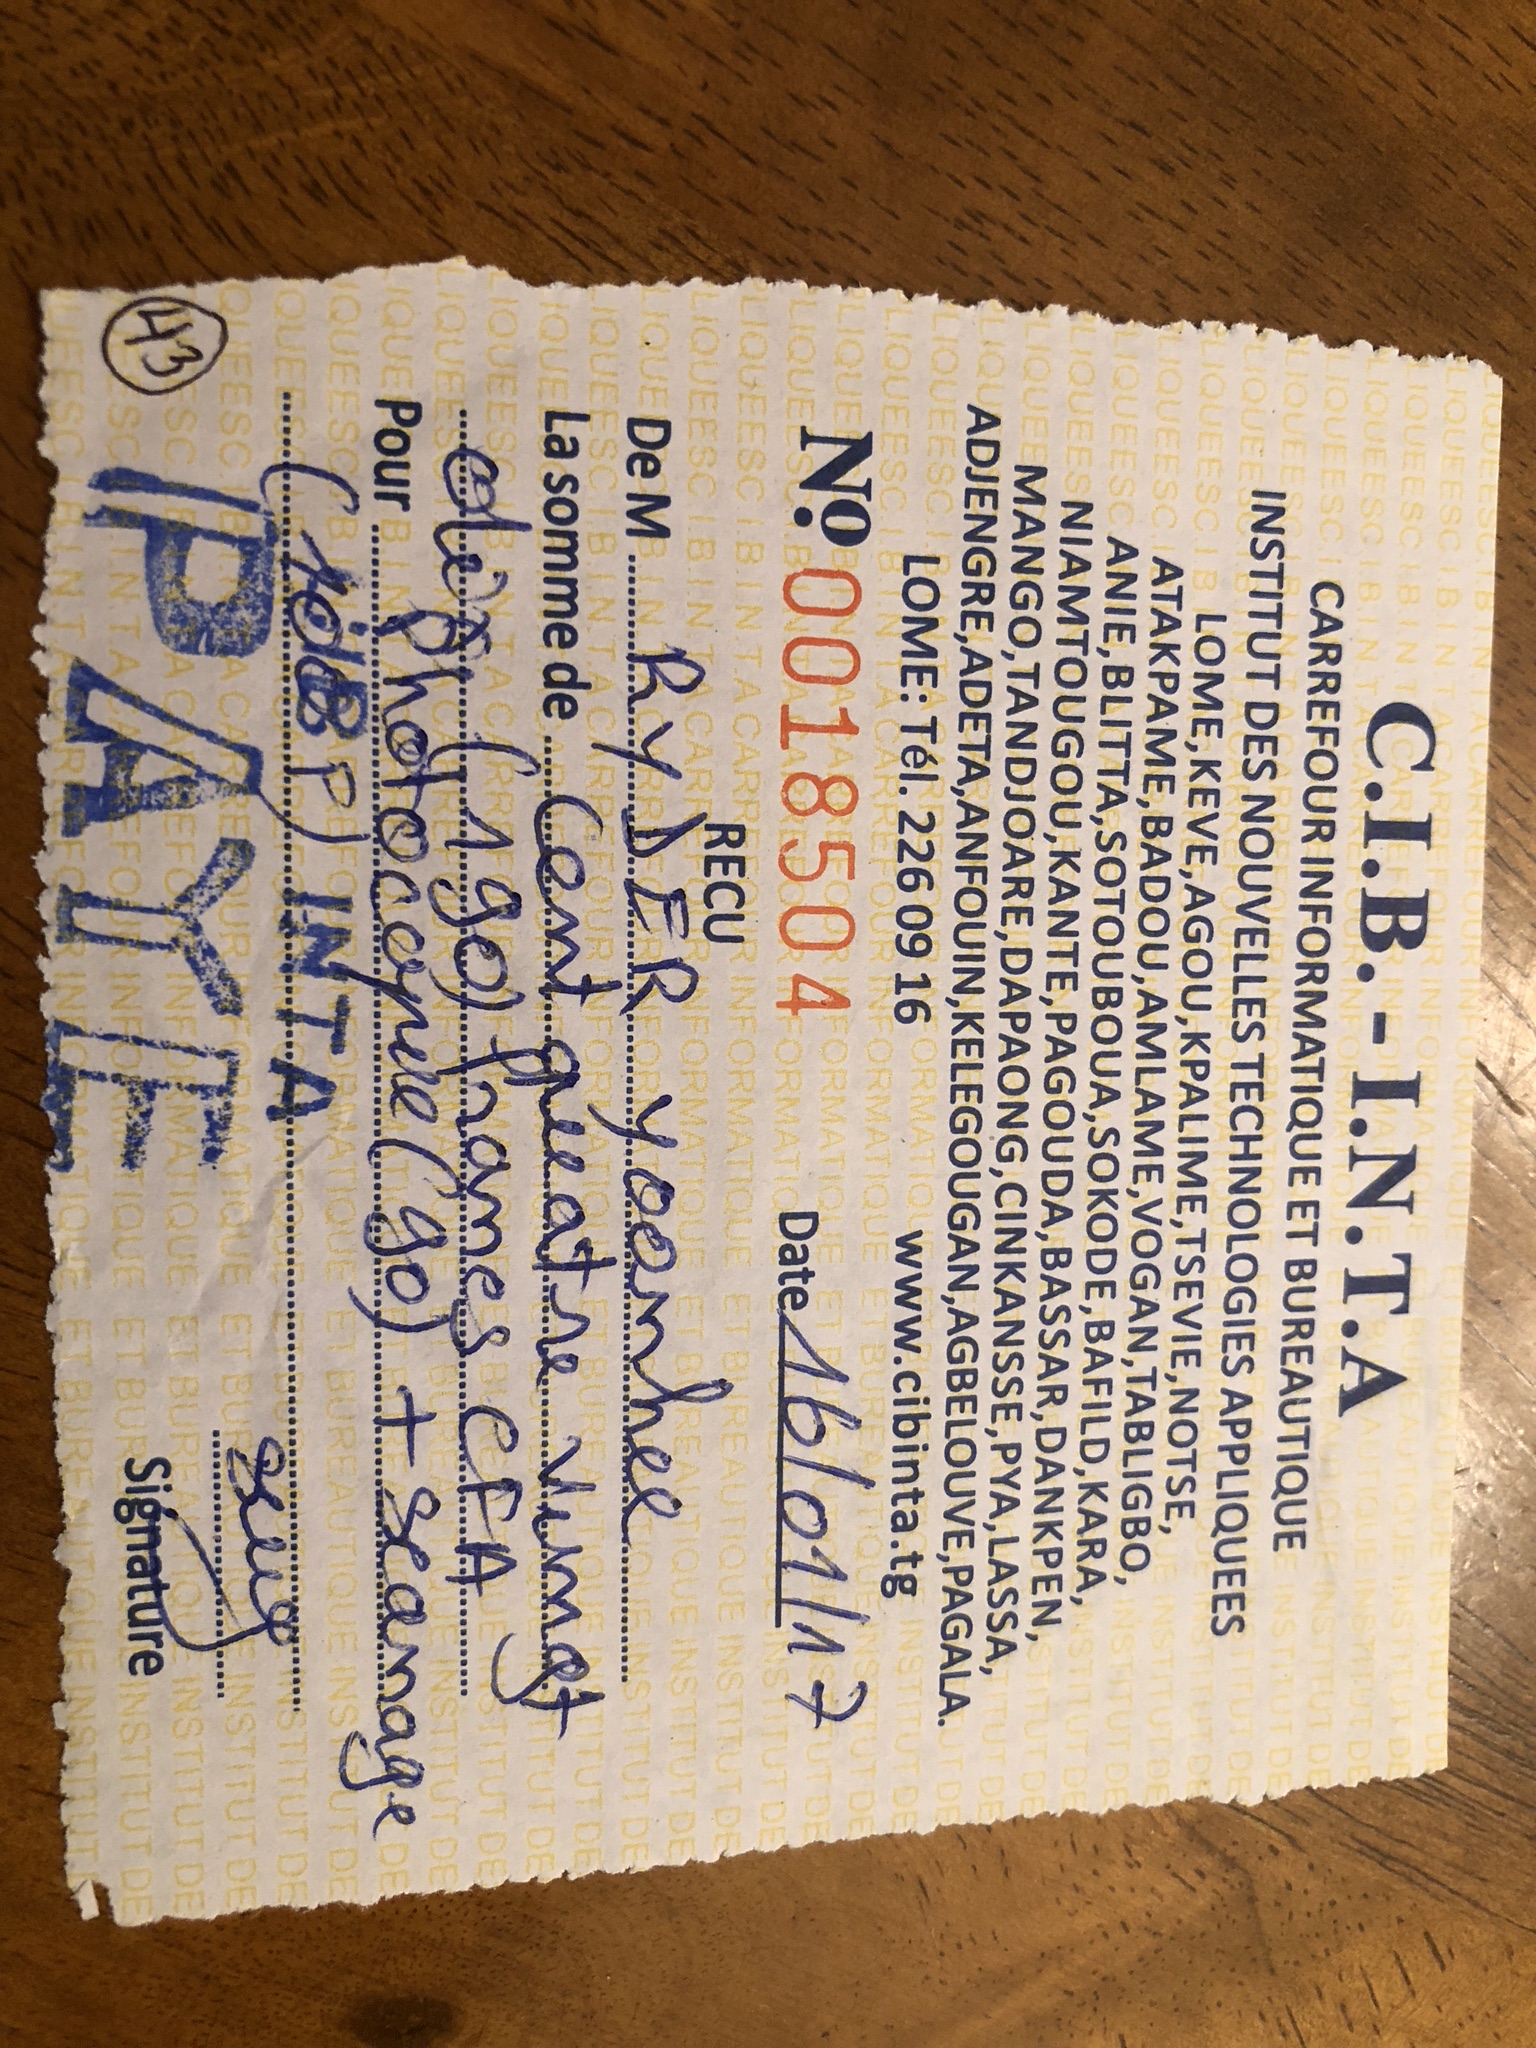 C.I.B.-I.N.T.A
CARREFOUR INFORMATIQUE ET BUREAUTIQUE
INSTITUT DES NOUVELLES TECHNOLOGIES APPLIQUEES
LOME,KEVE,AGOU,KPALIME,TSEVIE,NOTSE,
ATAKPAME,BADOU,AMLAME,VOGAN,TABLIGBO,
ANIE,BLITTA,SOTOUBOUA,SOKODE,BAFILD,KARA,
NIAMTOUGOU,KANTE,PAGOUDA,BASSAR,DANKPEN,
MANGO,TANDJOARE,DAPAONG,CINKANSSE,PYA,LASSA,
ADJENGRE,ADETA,ANFOUIN,KELEGOUGAN,AGBELOUVE,PAGALA.
LOME: Tél. 226 09 16 www.cibinta.tg
No. 0018504 Date 16/01/17
RECU
De M RYDER yoonhee
La somme de Cent queatre vingt
dix (190) francs CFA
Pour Photocopie (90) + scanage
(10 P)
CIB INTA
PAYE
Signature
43